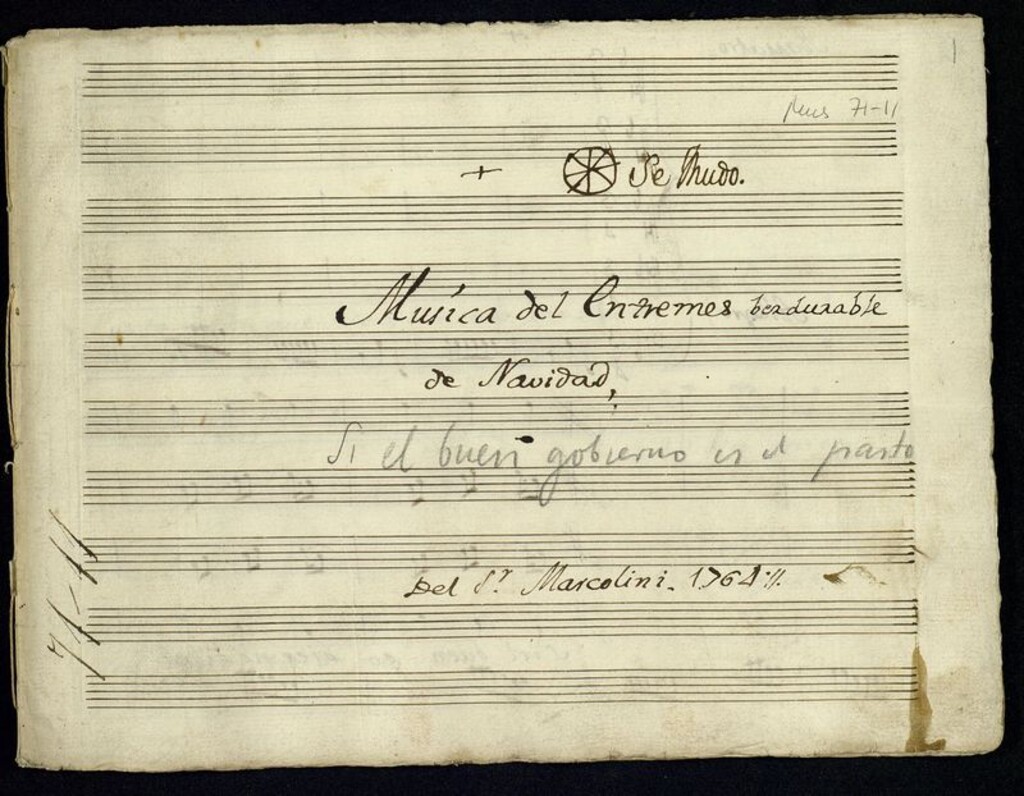 1
Mus 71-11
+ Se Mudo.
Musica del Entremes berdurable
de Navidad,
Si el buen gobierno es el
Del S.r Marcolini. 1764://.
71-11